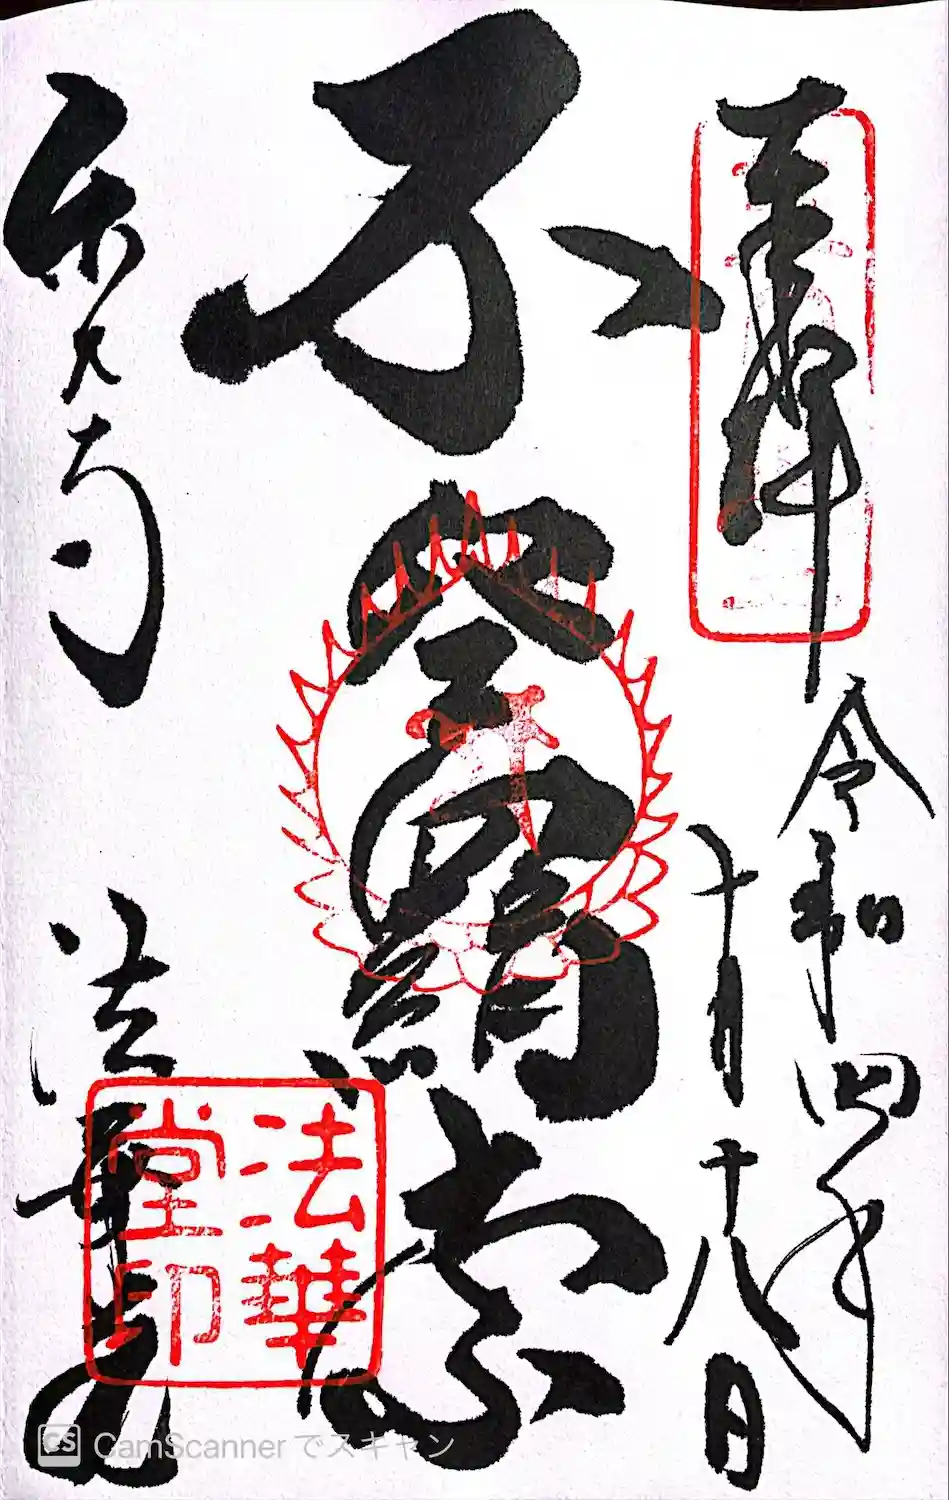 奉拝
令和四年
十月十八日
不空羂索
東大寺
法華堂
法華
堂印
CS CamScannerでスキャン